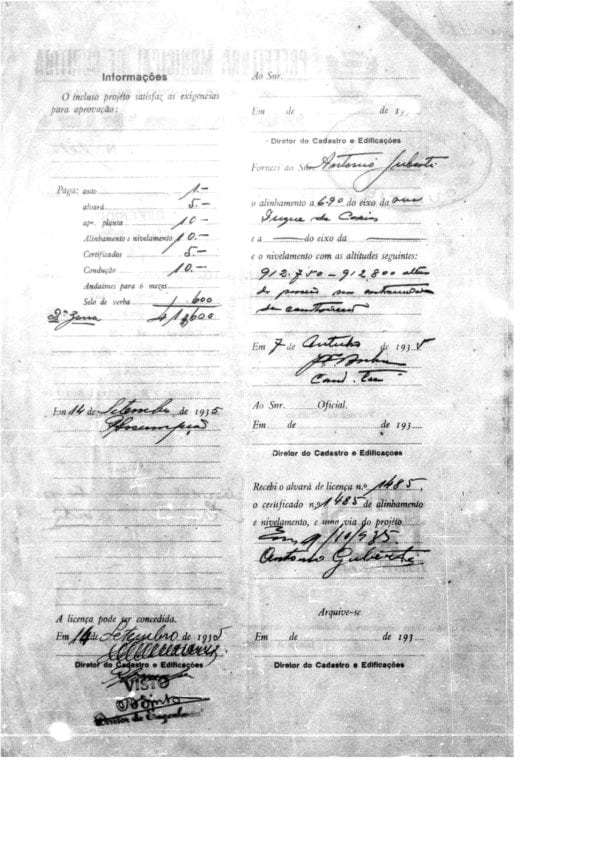 Informações
O incluso projéto satisfaz as exigencias
para aprovação:
Paga: auto 1.—
alvará 5.—
ap. planta 10—
Alinhamento e nivelamento 10.—
Certificados 5.—
Condução 10.—
Andaimes para 6 mezes
Selo de verba 1.600
2ª Zona 41$600
Em 14 de Setembro de 1935
A licença pode ser concedida.
Em 14 de Setembro de 1935
Diretor do Cadastro e Edificações
VISTO
Diretor de Engenha
Ao Snr.
Em de de 19
Diretor do Cadastro e Edificações
Forneci ao Snr. Antonio Guberti
o alinhamento a 6.90 do eixo da rua
Duque de Caxias
e a do eixo da
e o nivelamento com as altitudes seguintes:
912.750 — 912,800
Em 7 de Outubro de 1935
Ao Snr. Oficial.
Em de de 193
Diretor do Cadastro e Edificações
Recebi o alvará de licença n.o 1485,
o certificado n.o 1485 de alinhamento
e nivelamento, e uma via do projéto.
Em, 9/10/935.
Antonio Guberti
Arquive-se
Em de de 193
Diretor do Cadastro e Edificações